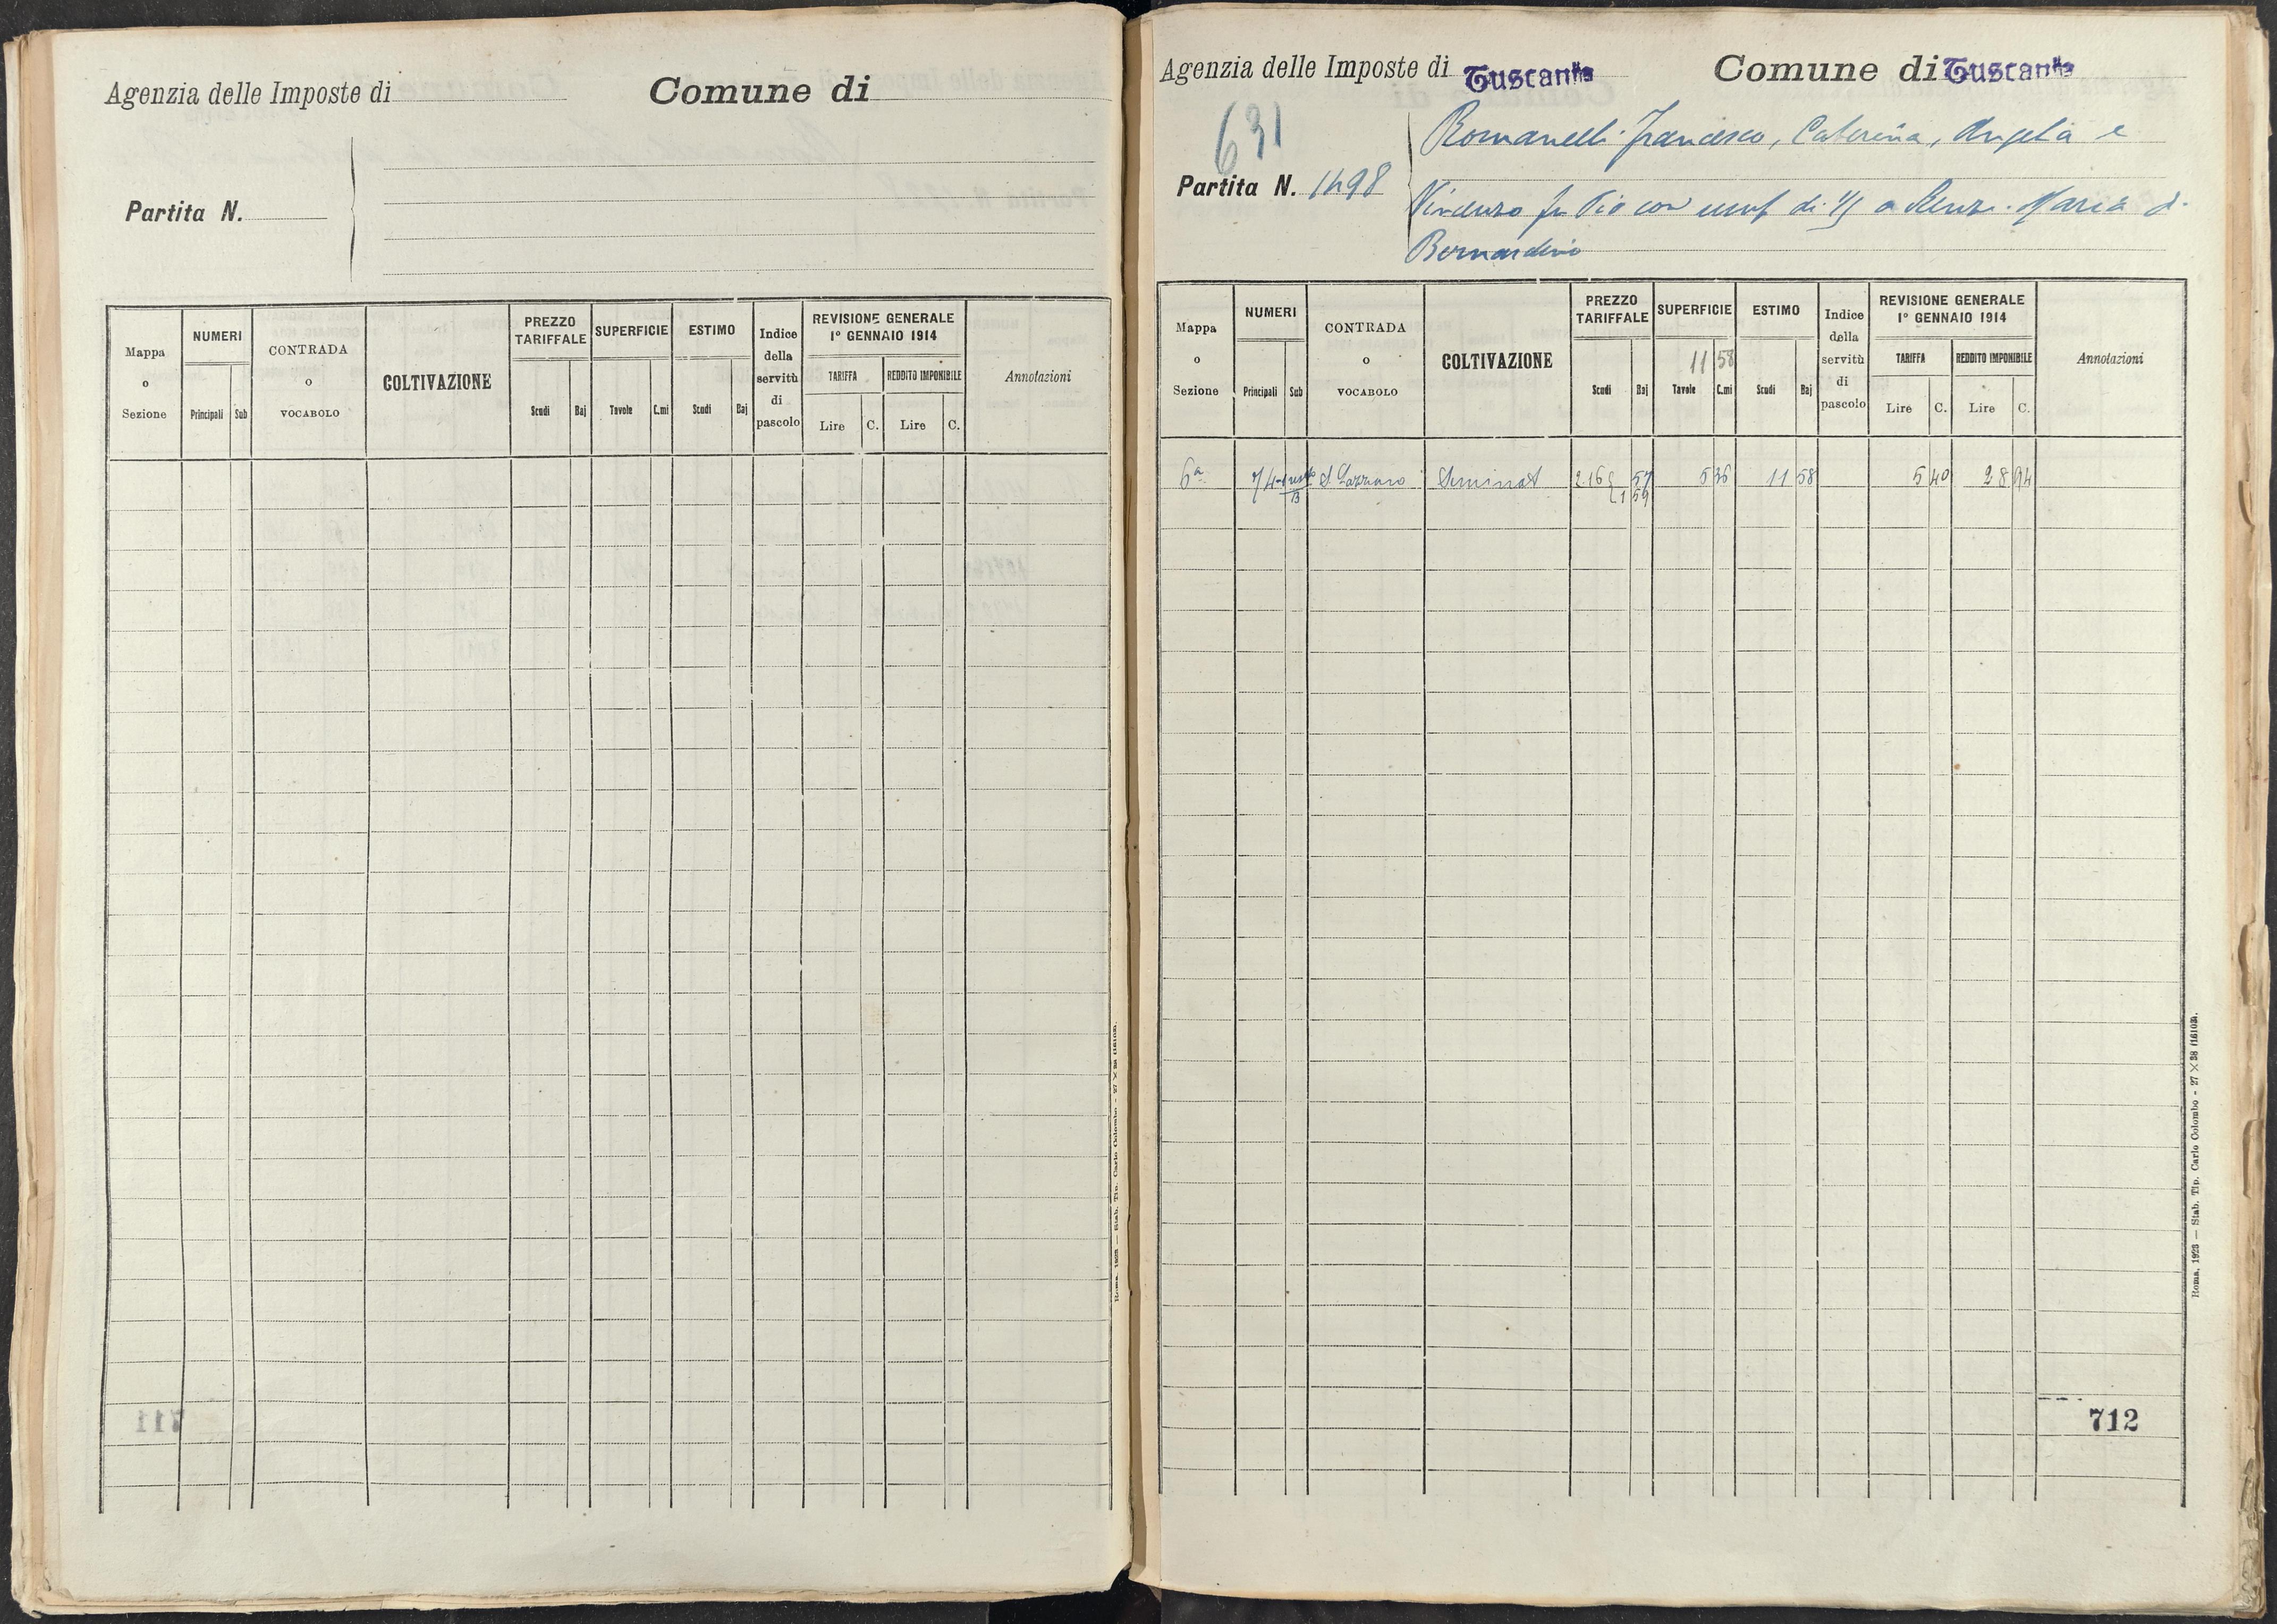 Agenzia delle Imposte di
Comune di
Partita N.
Mappa o Sezione
NUMERI
Principali
Sub
CONTRADA o VOCABOLO
COLTIVAZIONE
PREZZO TARIFFALE
Scudi
Baj
SUPERFICIE
Tavole
C.mi
ESTIMO
Scudi
Baj
Indice della servitù di pascolo
REVISIONE GENERALE
1° GENNAIO 1914
TARIFFA
Lire
C.
REDDITO IMPONIBILE
Lire
C.
Annotazioni
Roma, 1923 — Stab. Tip. Carlo Colombo - 27 × 38
711
Agenzia delle Imposte di Tuscania
Comune di Tuscania
631
Partita N. 1498
Romanelli Francesco, Caterina, Angela e
Vincenzo fu Pio con usuf di 1/5 a Maria di
Bernardino
Mappa o Sezione
NUMERI
Principali
Sub
CONTRADA o VOCABOLO
COLTIVAZIONE
PREZZO TARIFFALE
Scudi
Baj
SUPERFICIE
11 58
Tavole
C.mi
ESTIMO
Scudi
Baj
Indice della servitù di pascolo
REVISIONE GENERALE
1° GENNAIO 1914
TARIFFA
Lire
C.
REDDITO IMPONIBILE
Lire
C.
Annotazioni
6ª S. Lazzaro Seminat 2.16 57 5 36 11 58 5 40 28 94
1 59
712
Roma, 1923 — Stab. Tip. Carlo Colombo - 27 × 38 (16103).